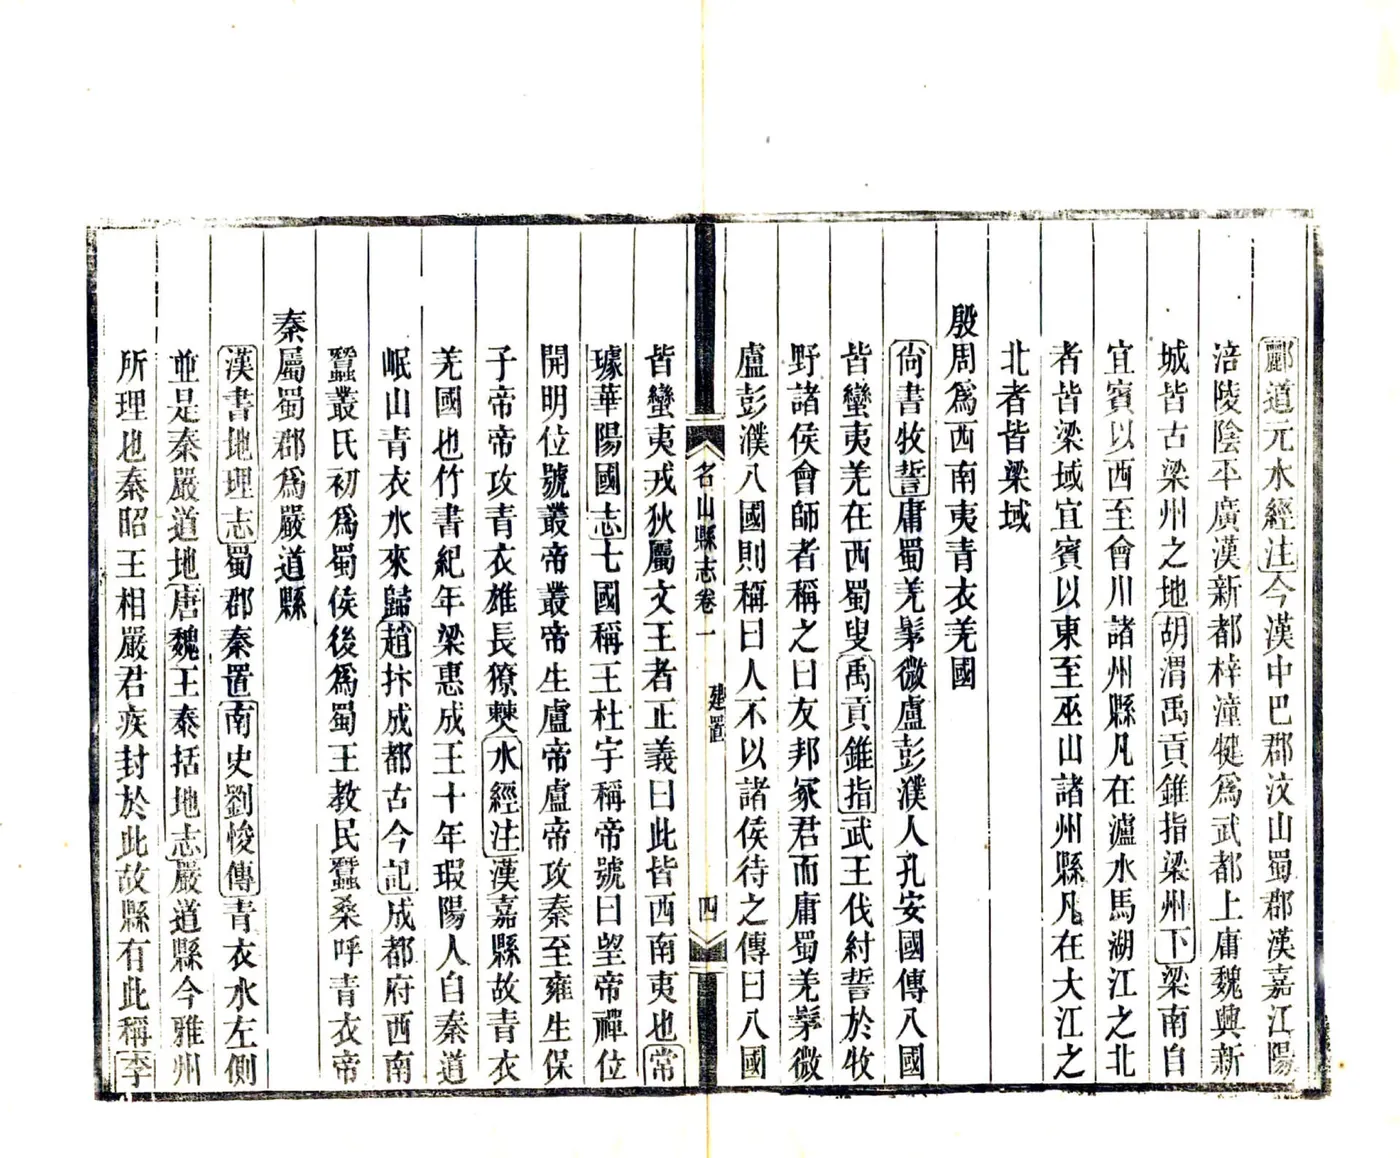 酈道元水經注今漢中巴郡汶山蜀郡漢嘉江陽
涪陵陰平廣漢新都梓潼犍爲武都上庸魏興新
城皆古梁州之地胡渭禹貢錐指梁州下梁南自
宜賓以西至會川諸州縣凡在瀘水馬湖江之北
者皆梁域宜賓以東至巫山諸州縣凡在大江之
北者皆梁域
殷周爲西南夷青衣羌國
尙書牧誓庸蜀羌髳微盧彭濮人孔安國傳八國
皆蠻夷羌在西蜀叟禹貢錐指武王伐紂誓於牧
野諸侯會師者稱之曰友邦冢君而庸蜀羌髳微
盧彭濮八國則稱曰人不以諸侯待之傳曰八國
名山縣志卷一 建置 四
皆蠻夷戎狄屬文王者正義曰此皆西南夷也常
璩華陽國志七國稱王杜宇稱帝號曰望帝禪位
開明位號叢帝叢帝生盧帝盧帝攻秦至雍生保
子帝帝攻青衣雄長獠僰水經注漢嘉縣故青衣
羌國也竹書紀年梁惠成王十年瑕陽人自秦道
岷山青衣水來歸趙抃成都古今記成都府西南
蠶叢氏初爲蜀侯後爲蜀王教民蠶桑呼青衣帝
秦屬蜀郡爲嚴道縣
漢書地理志蜀郡秦置南史劉悛傳青衣水左側
並是秦嚴道地唐魏王泰括地志嚴道縣今雅州
所理也秦昭王相嚴君疾封於此故縣有此稱李